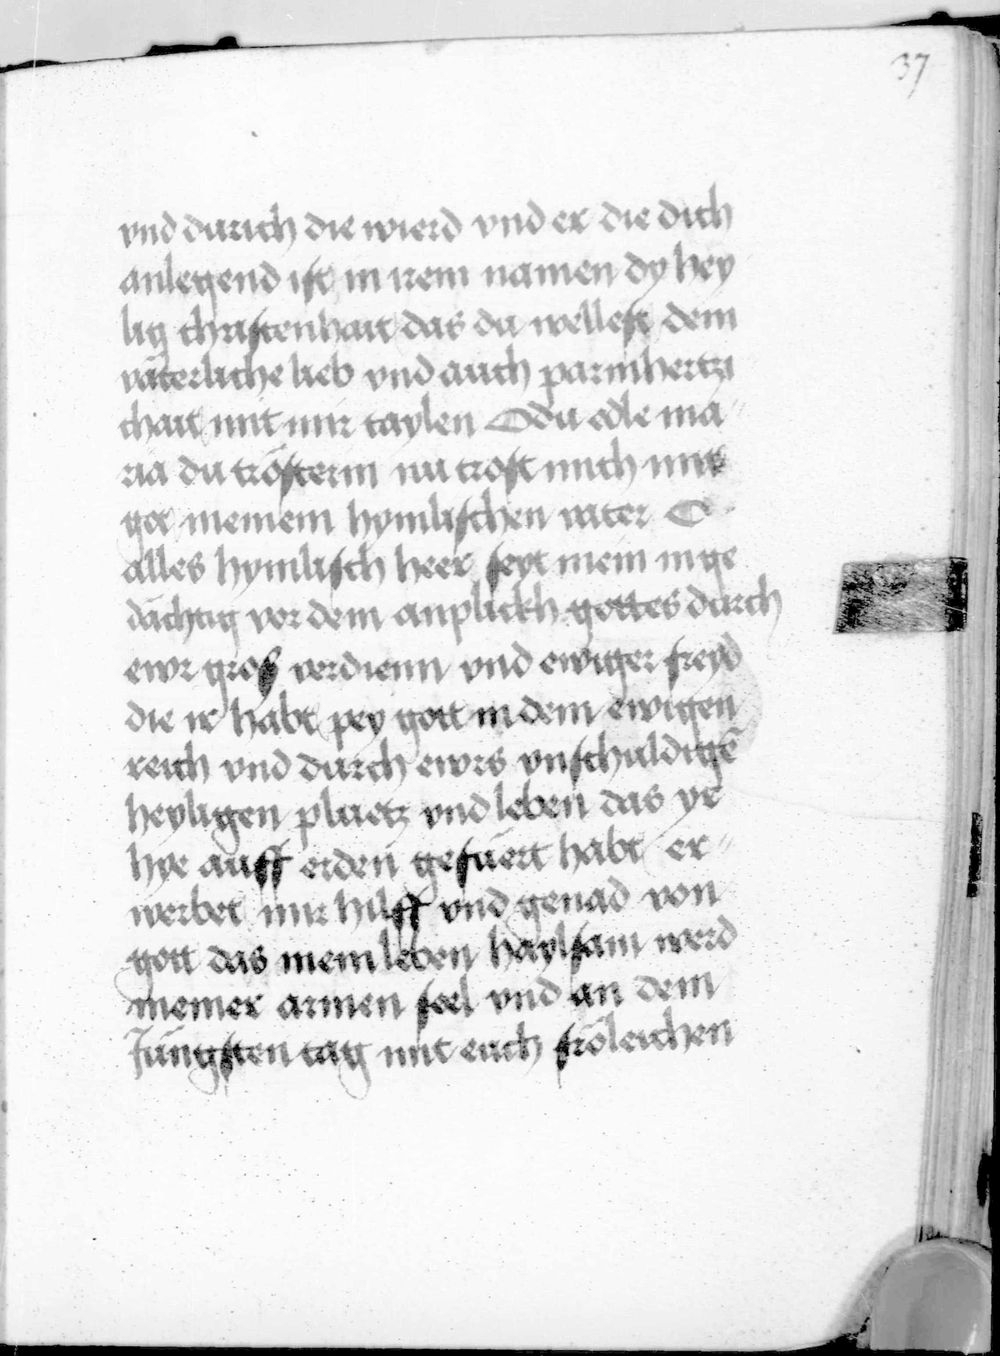 37
vnd durich die wierd vnd er die dich
anlegend ist in irem namen dy hey
lig christenhait das du wellest dein
väterliche lieb vnd auch parmhertzi
chait mit mir taylen O du edle ma
ria du trösterin nu trost mich mit
got meinem hymlischen vater O
alles hymlisch heer seyt mein inge
dächtig vor dem anplickh gottes durch
ewr gros verdienn vnd ewiger freyd
die ir habt pey gott in dem ewigen
reich vnd durch ewrs vnschuldigē
heyligen pluetz vnd leben das ye
hye auff erden gefuert habt er
werbet mir hilff vnd genad von
gott das mein leben haylsam werd
meiner armen seel vnd an dem
Jüngsten tag mit euch fröleichen